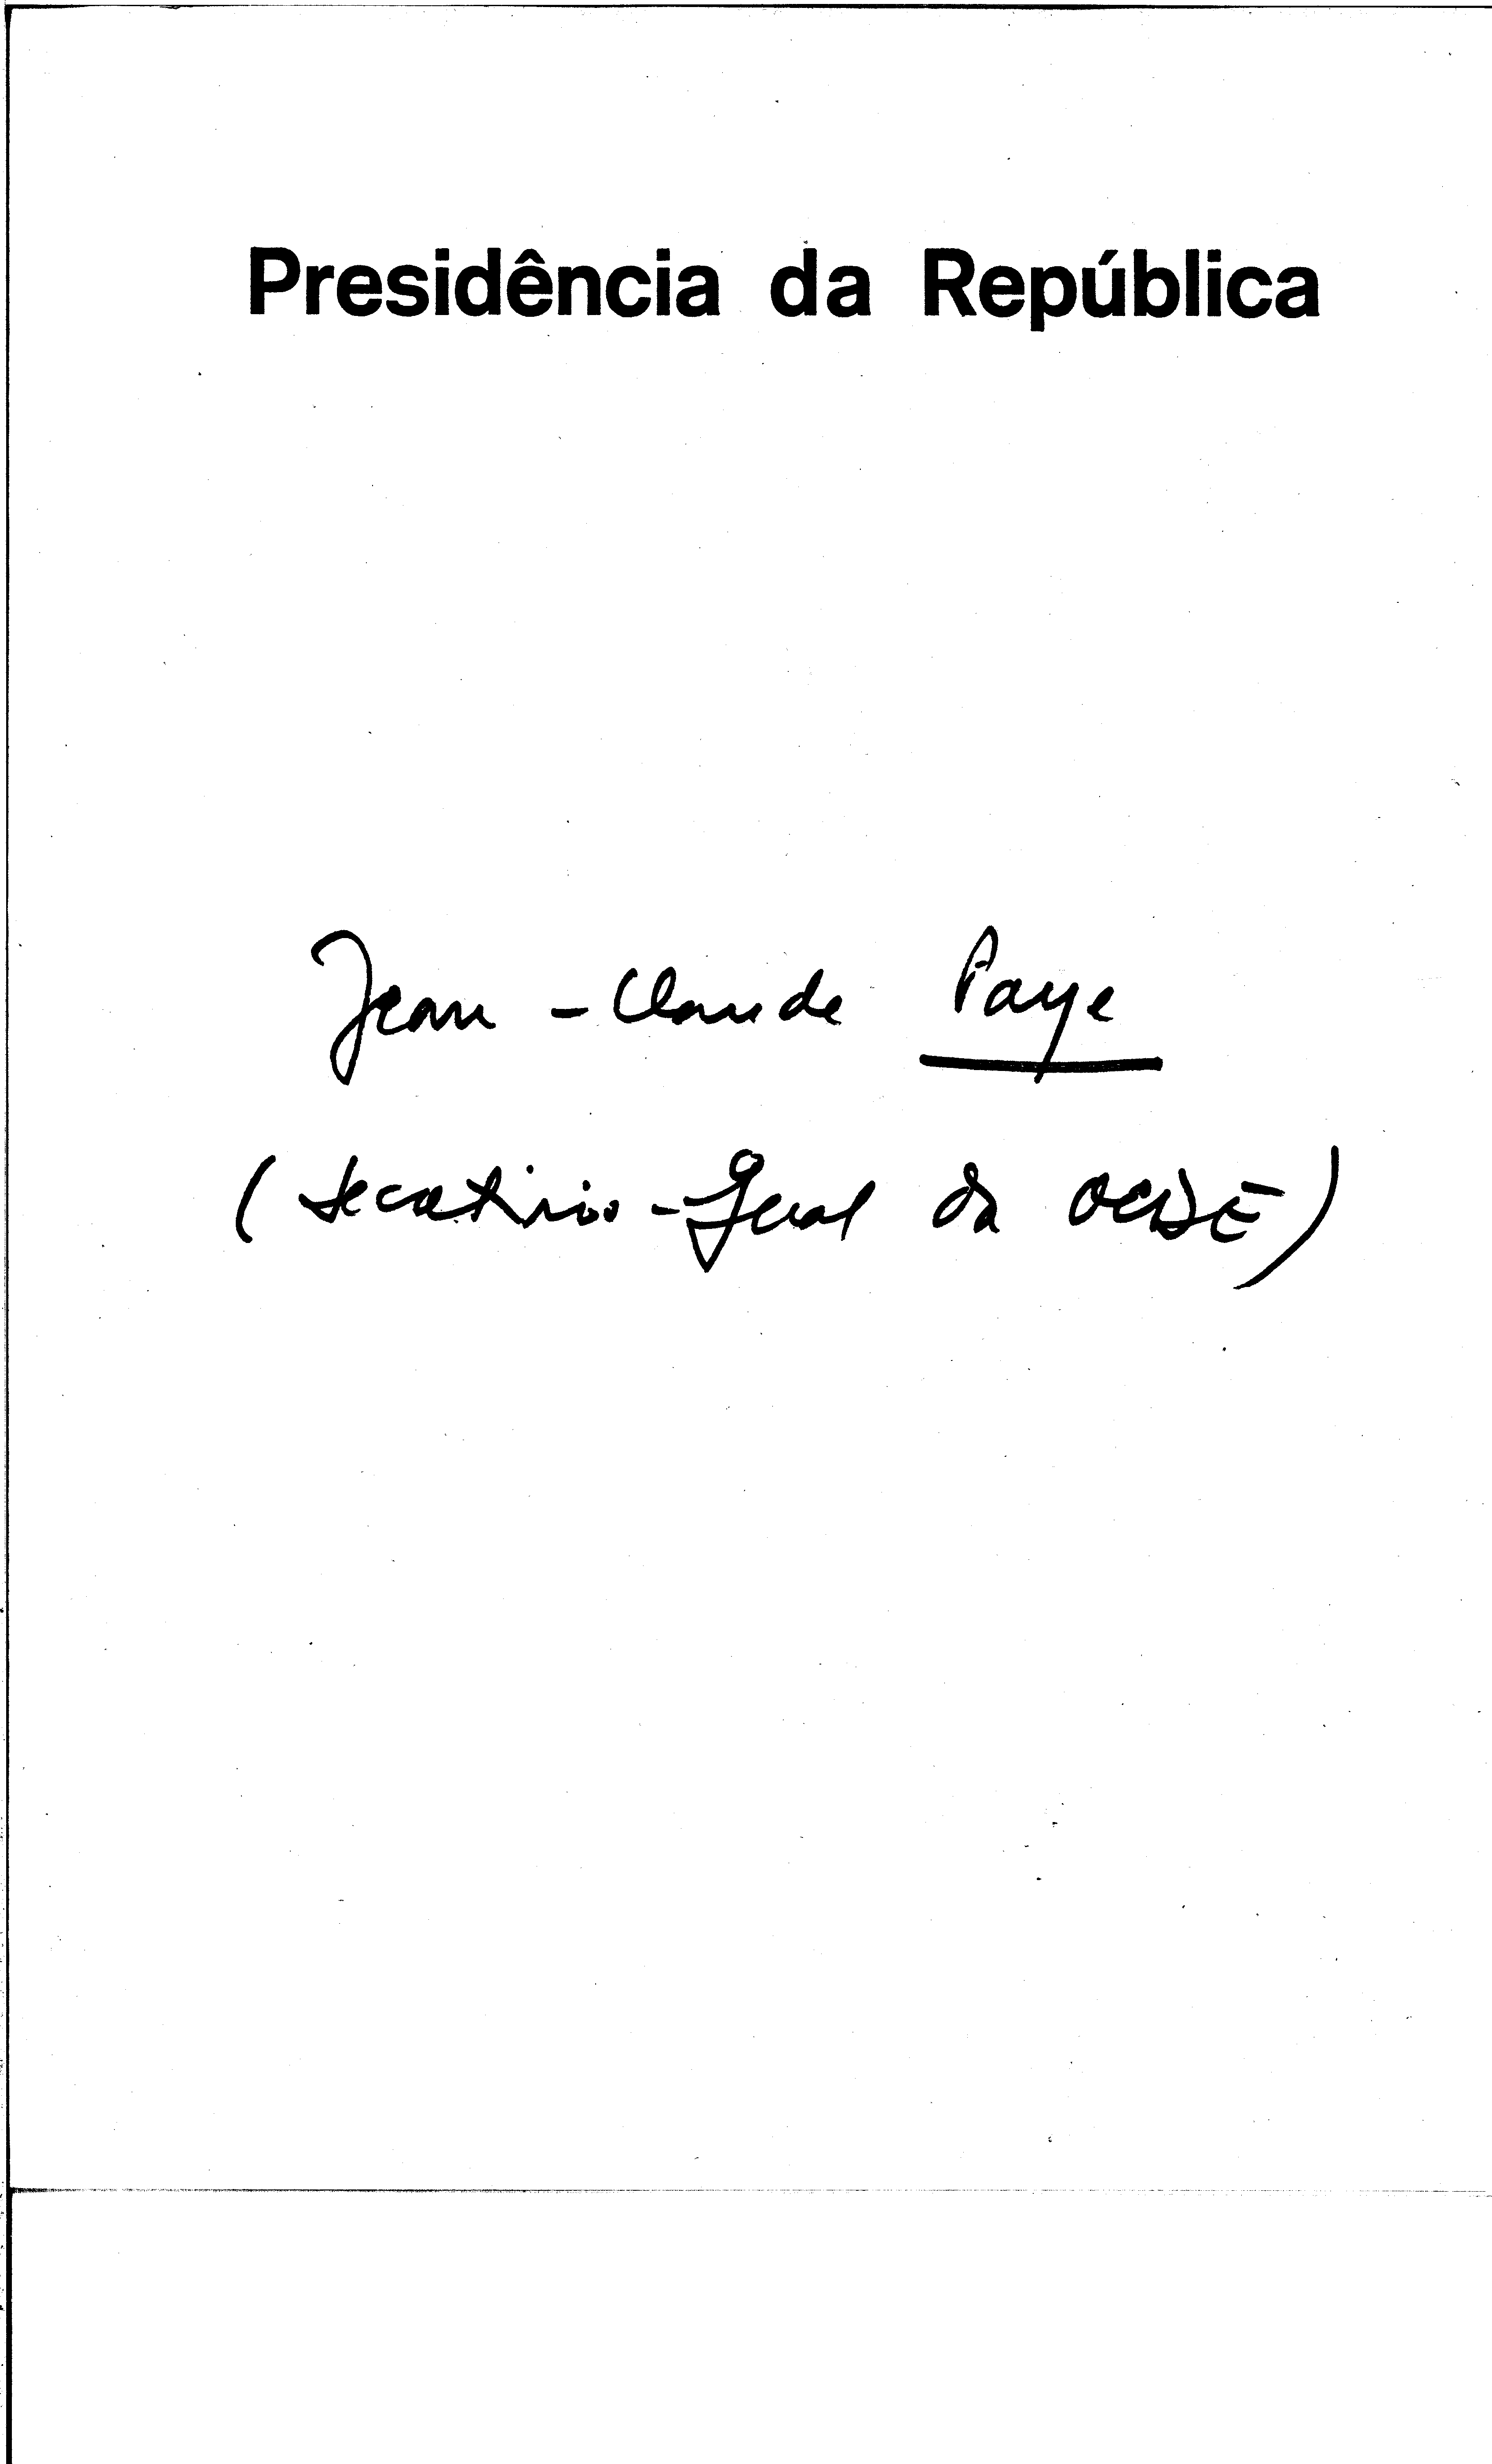 Presidência da República
Jean-Claude Paye
(Secretário-Geral da OCDE)